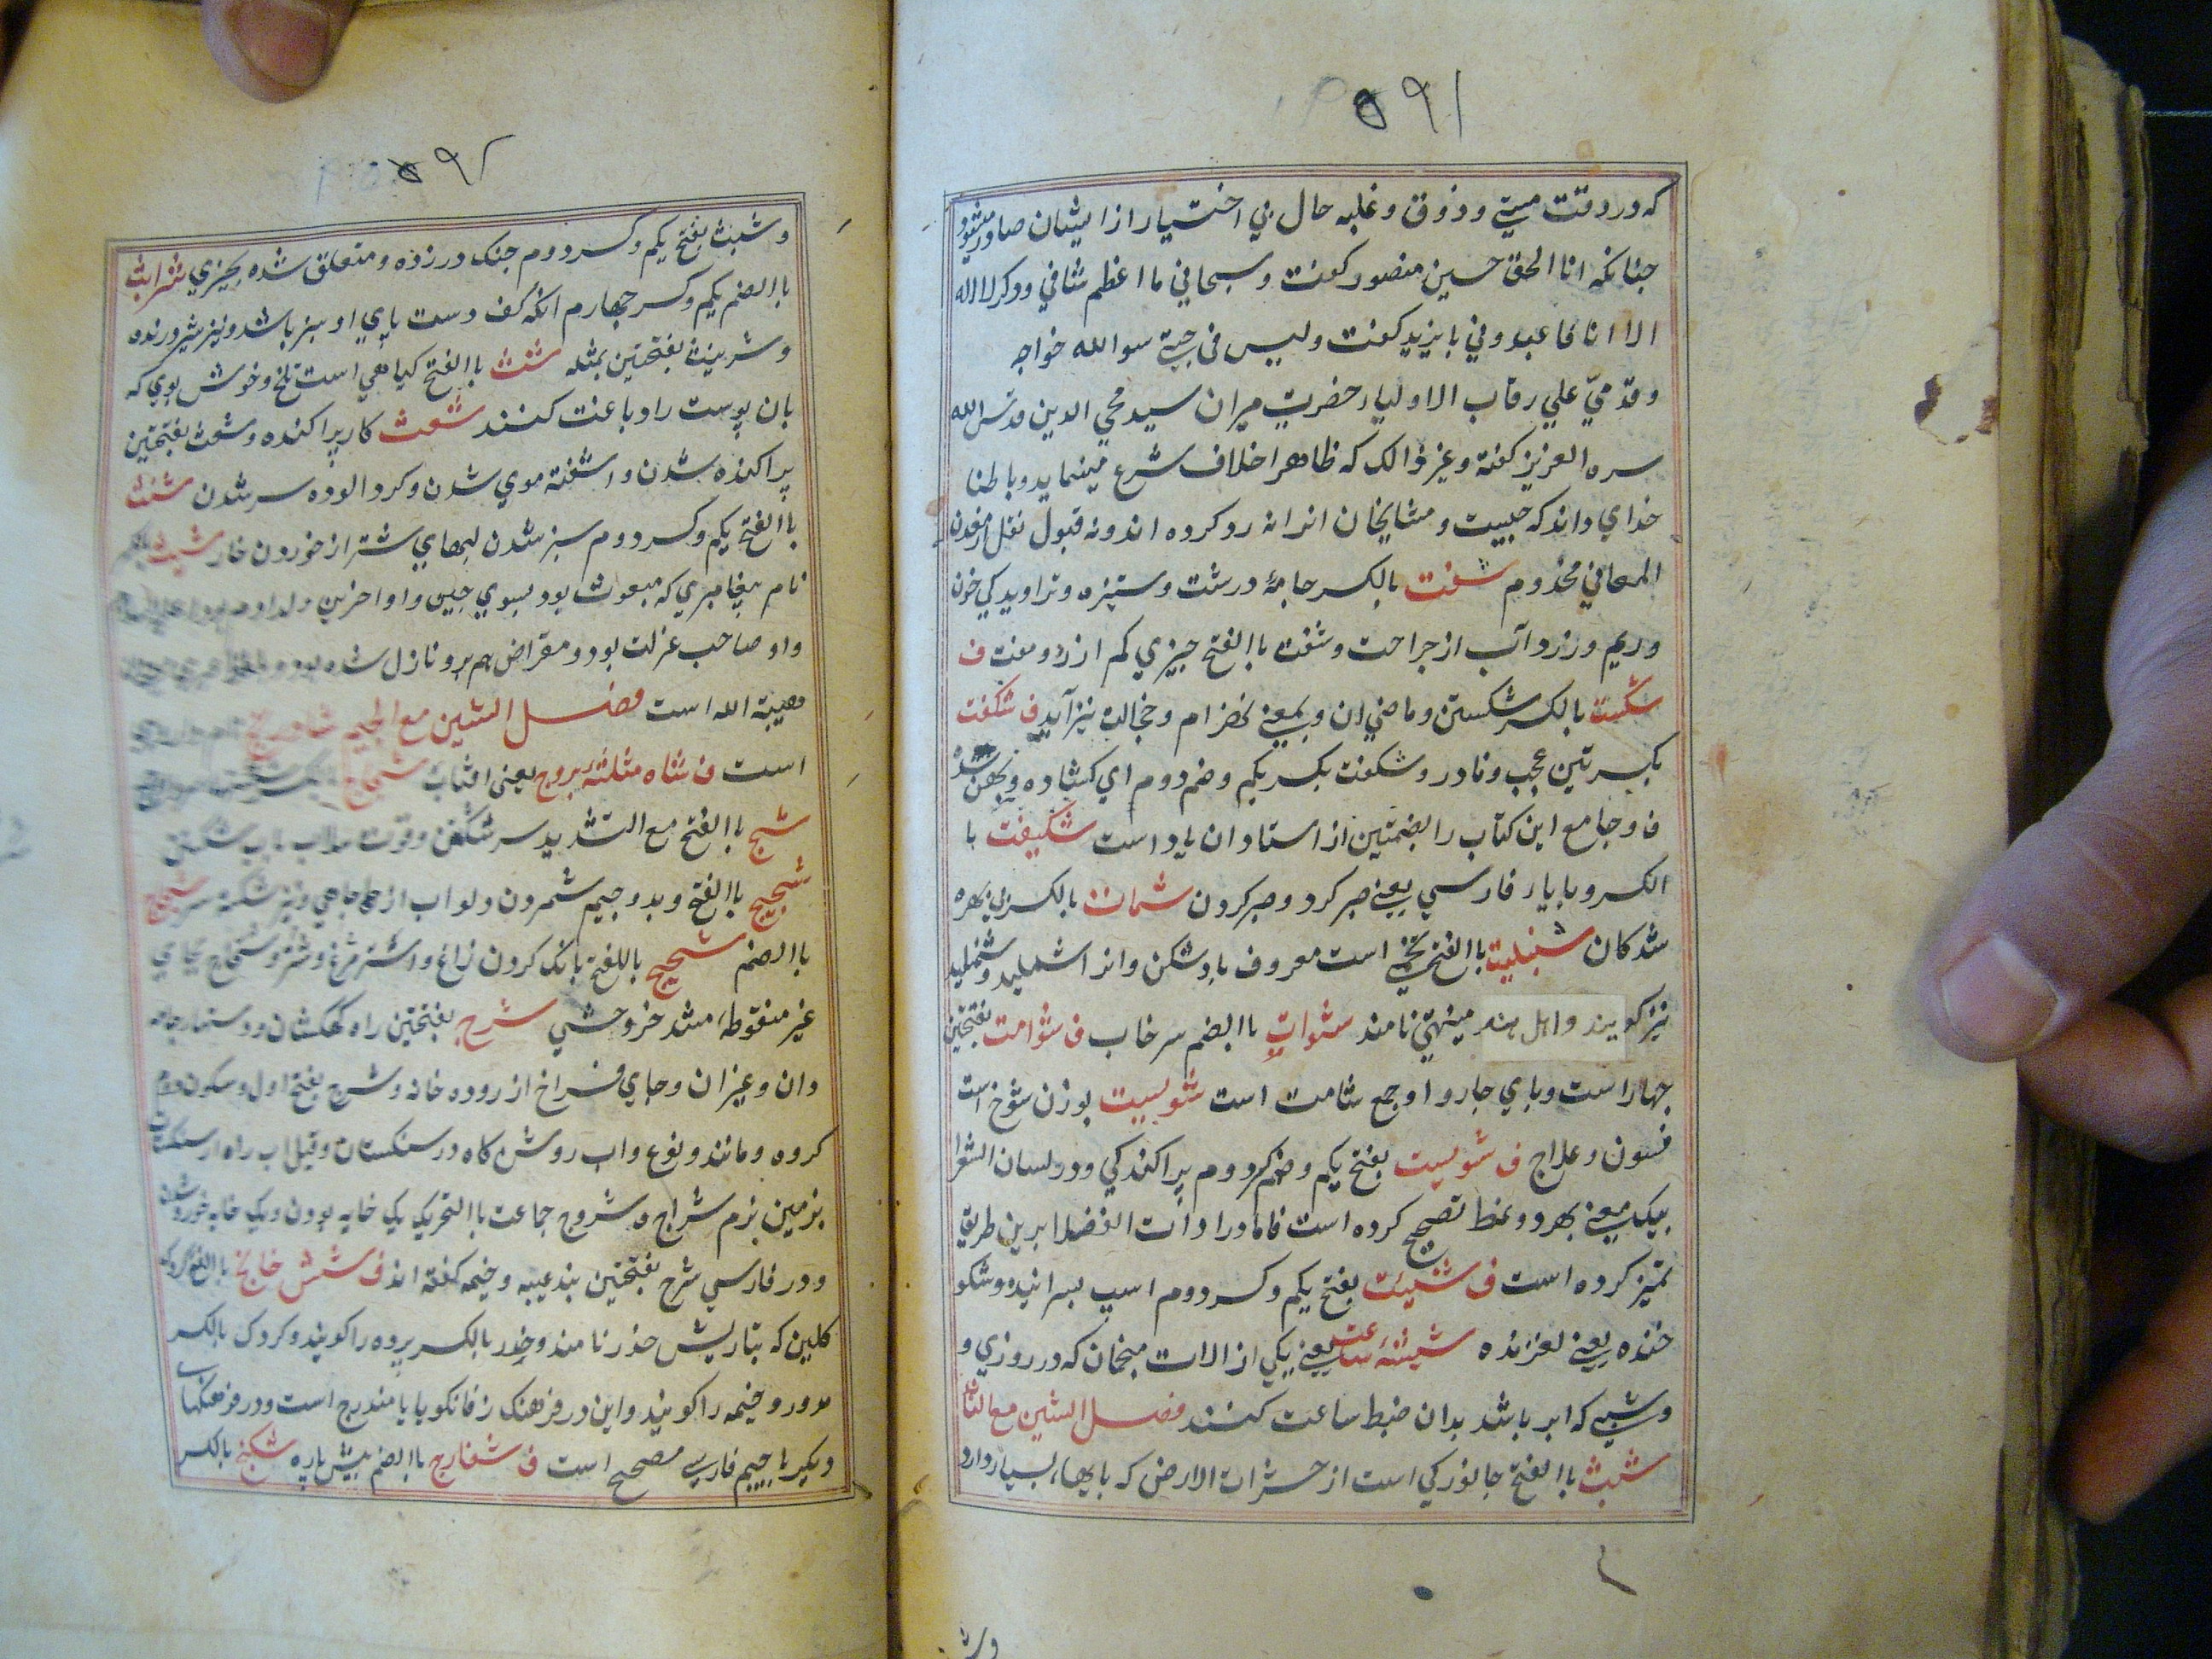 ۵۹۱
که در وقت مستی و ذوق و غلبه حال بی اختیار از ایشان صادر میشود
چنانکه انا الحق حسین منصور کفت و سبحانی ما اعظم شانی و دکر لا اله
الا انا فاعبدونی بایزید کفت و لیس فی جبتی سوا الله خواجه
و قدمی علی رقاب الاولیاء حضرت میران سید محی الدین قدس الله
سره العزیز کفته و غیر ذالک که ظاهرا خلاف شرع مینماید و باطنا
خدای داند که چیست و مشایخان انرا نه رد کرده اند و نه قبول نقل از معدن
المعانی مخدوم شفت بالکسر جامهٔ درشت و ستیزه و تراویدکی خون
و ریم و زرد آب از جراحت و شفت باالفتح چیزی کم ارز و مفت ف
شکست بالکسر شکستن و ماضی ان و بمعنی خزام و خجالت نیز آید ف شکفت
بکسرتین عجب و نادر و شکفت بکسر یکم و ضم دوم ای کشاده و پهن شد
ف و جامع این کتاب را بضمتین از استادان یاد است شکیفت با
الکسر و با یاء فارسی یعنی صبر کرد و صبر کردن شمات بالکسر بی بهره
شدکان شنبلیت باالفتح تخمی است معروف بادشکن و انرا شملید و شنبلید
نیز کویند و اهل هند میتهی نامند شوات باالضم سرخاب ف شوامت بفتحتین
چهار است و پای چاروا و جمع شامت است شوبیت بوزن شوخ است
فسون و علاج ف شولیت بفتح یکم و ضم دوم پراکندکی و در لسان الشعرا
بیک معنی بهر دو نمط تصحیح کرده است فاما و را دات الفضلا برین طریقا
تمیز کرده است ف شیت بفتح یکم و کسر دوم اسپ بسرانیده و شکو
خنده یعنی لغزنده شیشهٔ ساعت یعنی یکی از الات منجمان که در روزی و
و شبی که ابر باشد بدان ضبط ساعت کنند فصل الشین مع الثاء
شبث باالفتح جانورکی است از حشرات الارض که پایها، بسیار دارد
وش
۵۹۲
و شبث بفتح یکم و کسر دوم چنک در زده و متعلق شده بچیزی شرابث
باالضم یکم و کسر چهارم انکه کف دست پای او سبز باشد و نیز شیر درنده
و شرنبث بفتحتین مثله شث باالفتح کیاهی است تلخ و خوش بوی که
بان پوست را دباغت کنند شعث کار پراکنده و شعث بفتحتین
پراکنده شدن و اشفته موی شدن و کرد الوده سر شدن شنث
باالفتح یکم و کسر دوم سبز شدن لبهای شتر از خوردن خار شیث بالکسر
نام پیغامبری که مبعوث بود بسوی جن و او اخرین ولد ادم بود علیه السلام
و او صاحب عزلت بود و مقراض هم برو نازل شده بود
وهبة الله است فصل الشین مع الجیم
است ف شاه مثلثهٔ بروج یعنی افتاب
شج باالفتح مع التشدید سر شکستن
شجیج باالفتح و بدو جیم شمردن
باالضم شحیج باالفتح بانک کردن زاغ و استر
غیر منقوطه، مشدد خر وحشی شرج بفتحتین راه کهکشان
وان و غیر ان و جای فراخ از روده خانه و شرج بفتح اول و سکون دوم
کروه و مانند و نوع و اب روشن کاه در سنکستان و قیل اب راه از سنکستان
بزمین نرم شراج و شروج جماعت باالتحریک یک خایه بودن و یک خایه خورد شدن
و در فارسی شرج بفتحتین بند عیبه و خیمه کفته اند ف شش خانج باالفتح کردک
کلین که بتازیش خدر نامند و خدر بالکسر پرده را کویند و کردک بالکسر
مدور و خیمه را کویند و این در فرهنک زفانکویا پا مندرج است و در فرهنکهای
دیکر با جیم فارسی مصحح است ف شفارج باالضم پیش پاره شکنج بالکسر